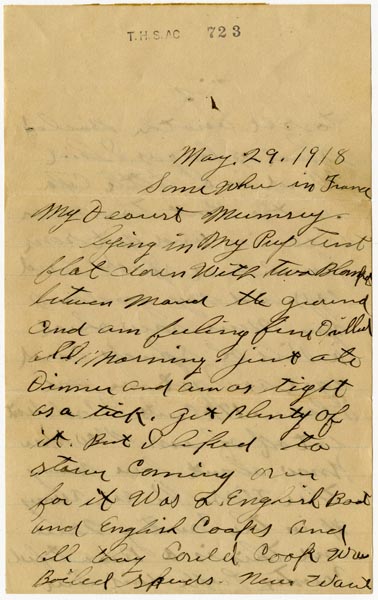 T.H.S. AC 723
May. 29. 1918
Some Where in France
My Dearest Mumsey.
lying in My Pup tent
flat down With two Blankets
between Me and the ground
and am feeling fine Drilled
all Morning just ate
Dinner and am as tight
as a tick. get Plenty of
it. But I liked to
starve Coming over
for it Was a English Boat
and English Cooks and
all they Could Cook Was
Boiled Spuds. Never Want